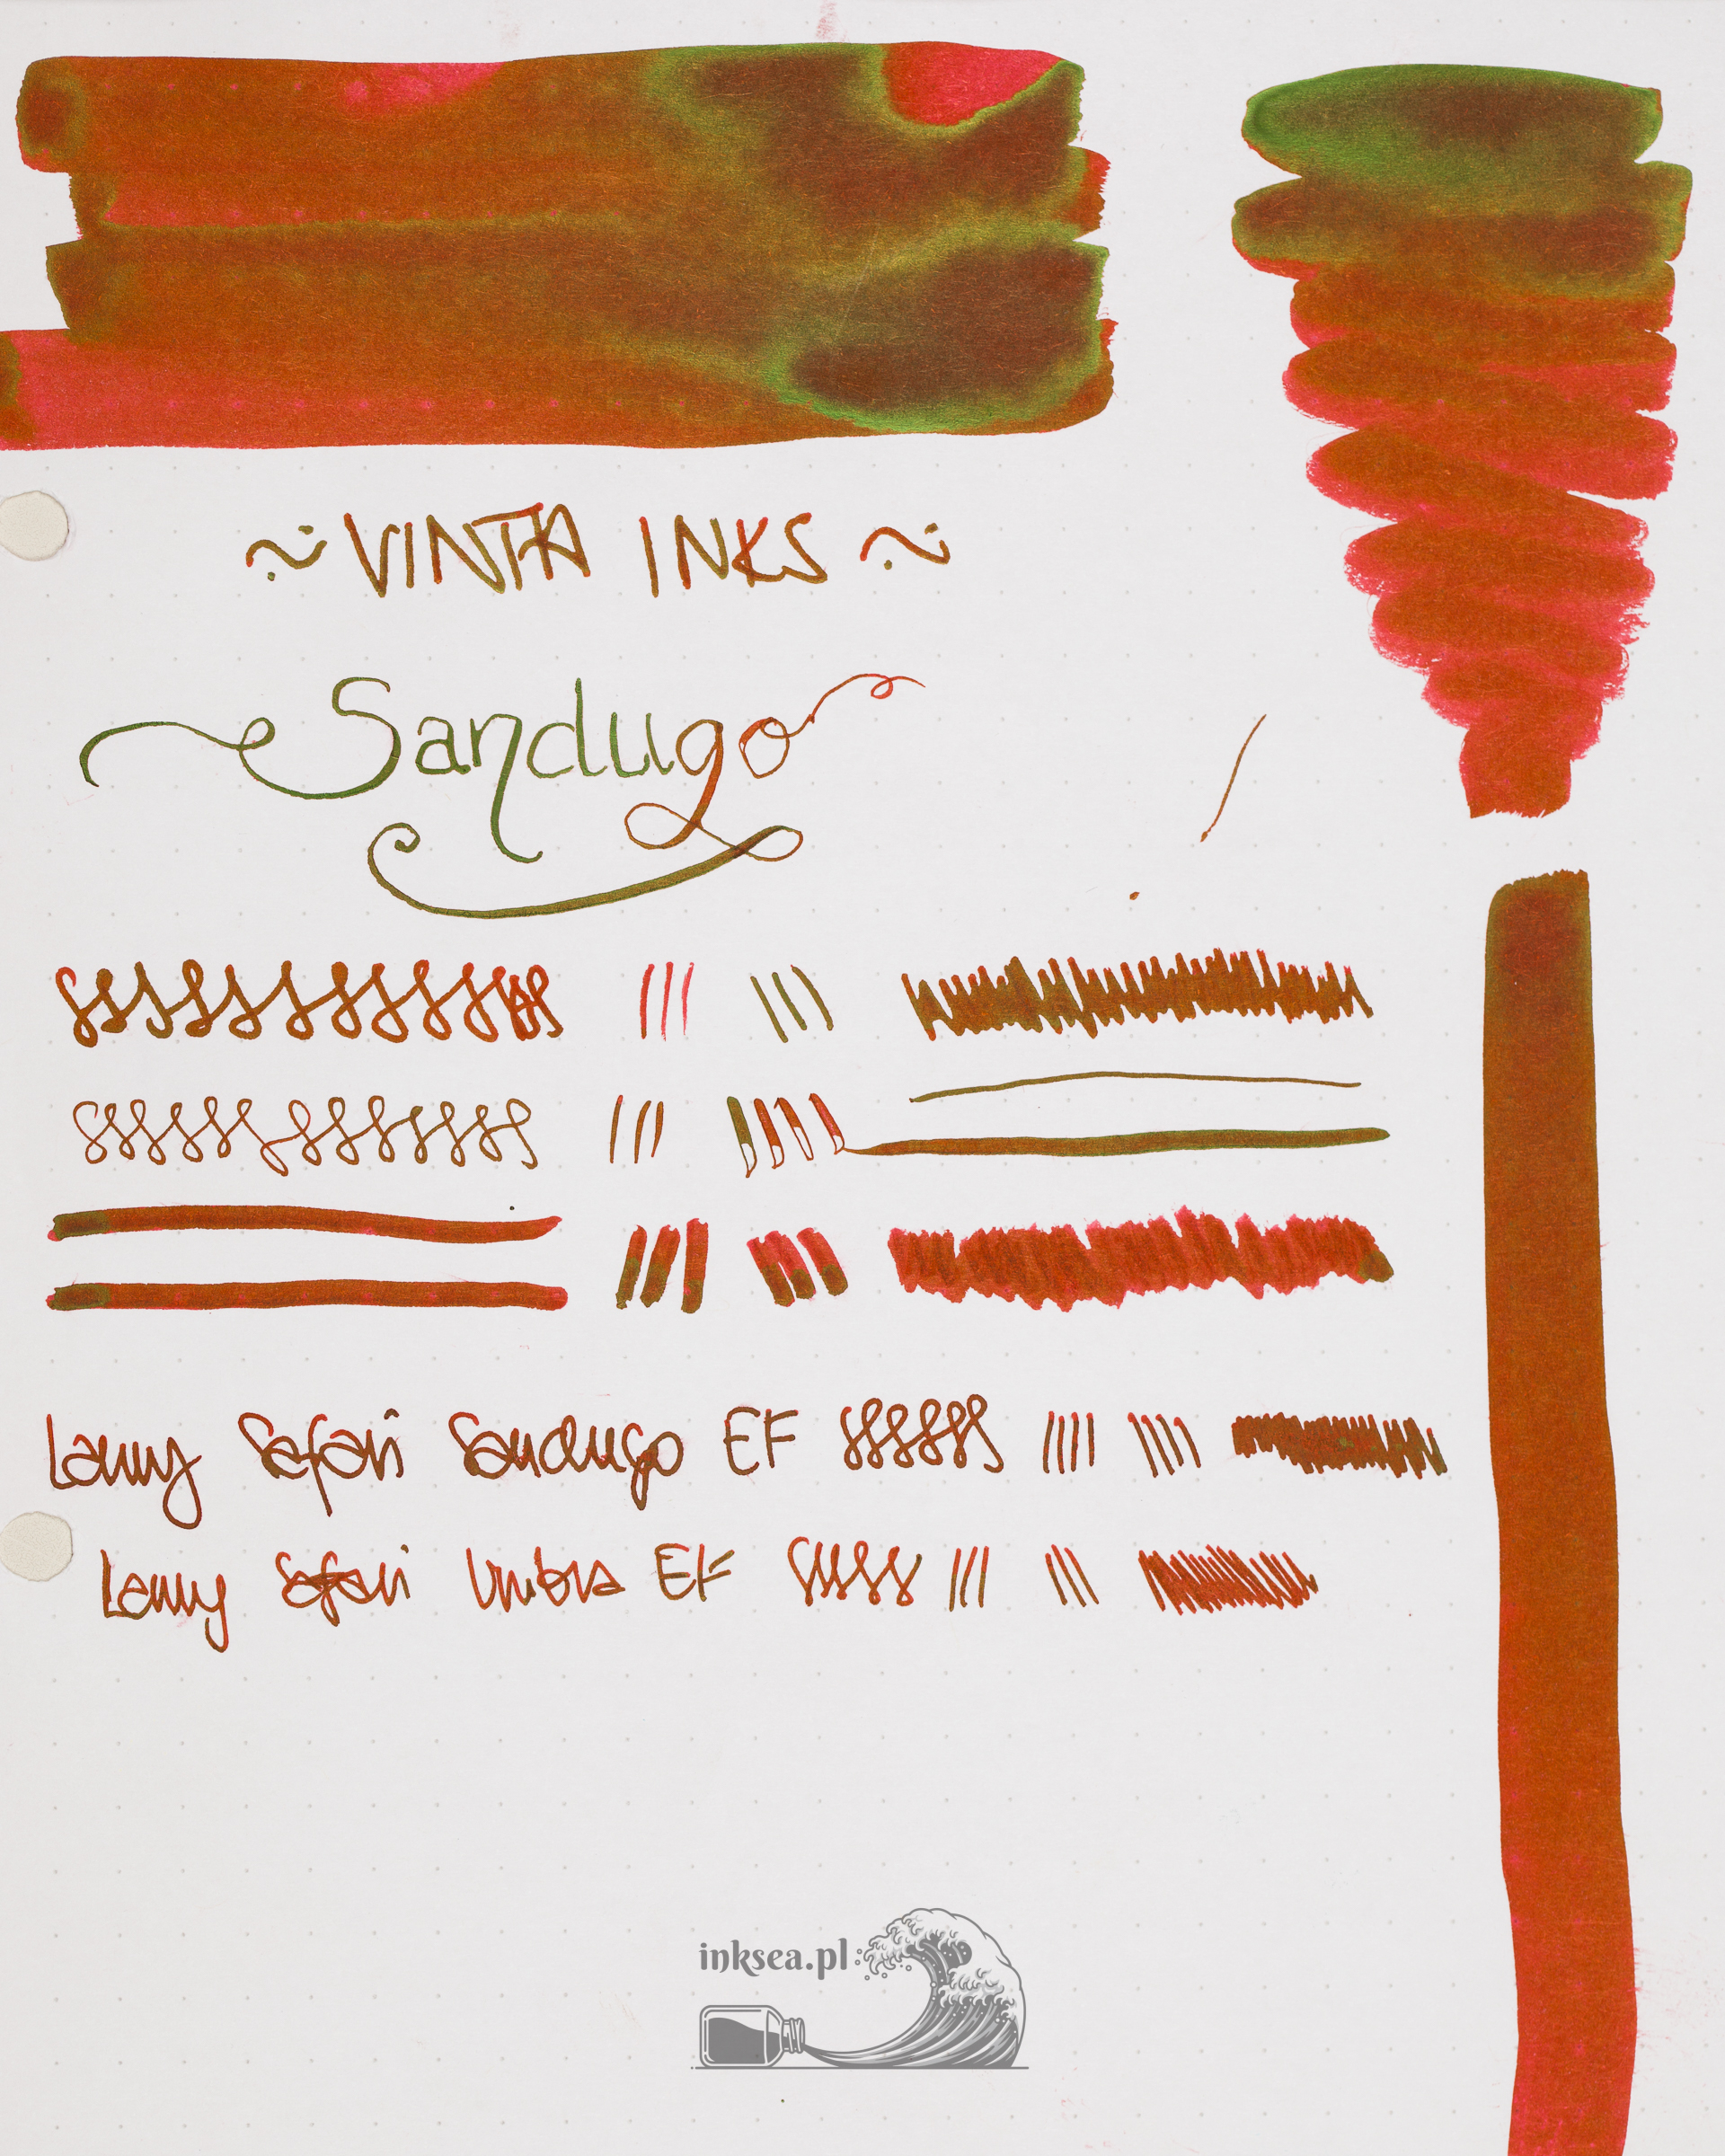 ~ VINTA INKS ~
Sandugo
Lamy Safari Sandugo EF
Lamy Safari Umbra EF
inksea.pl